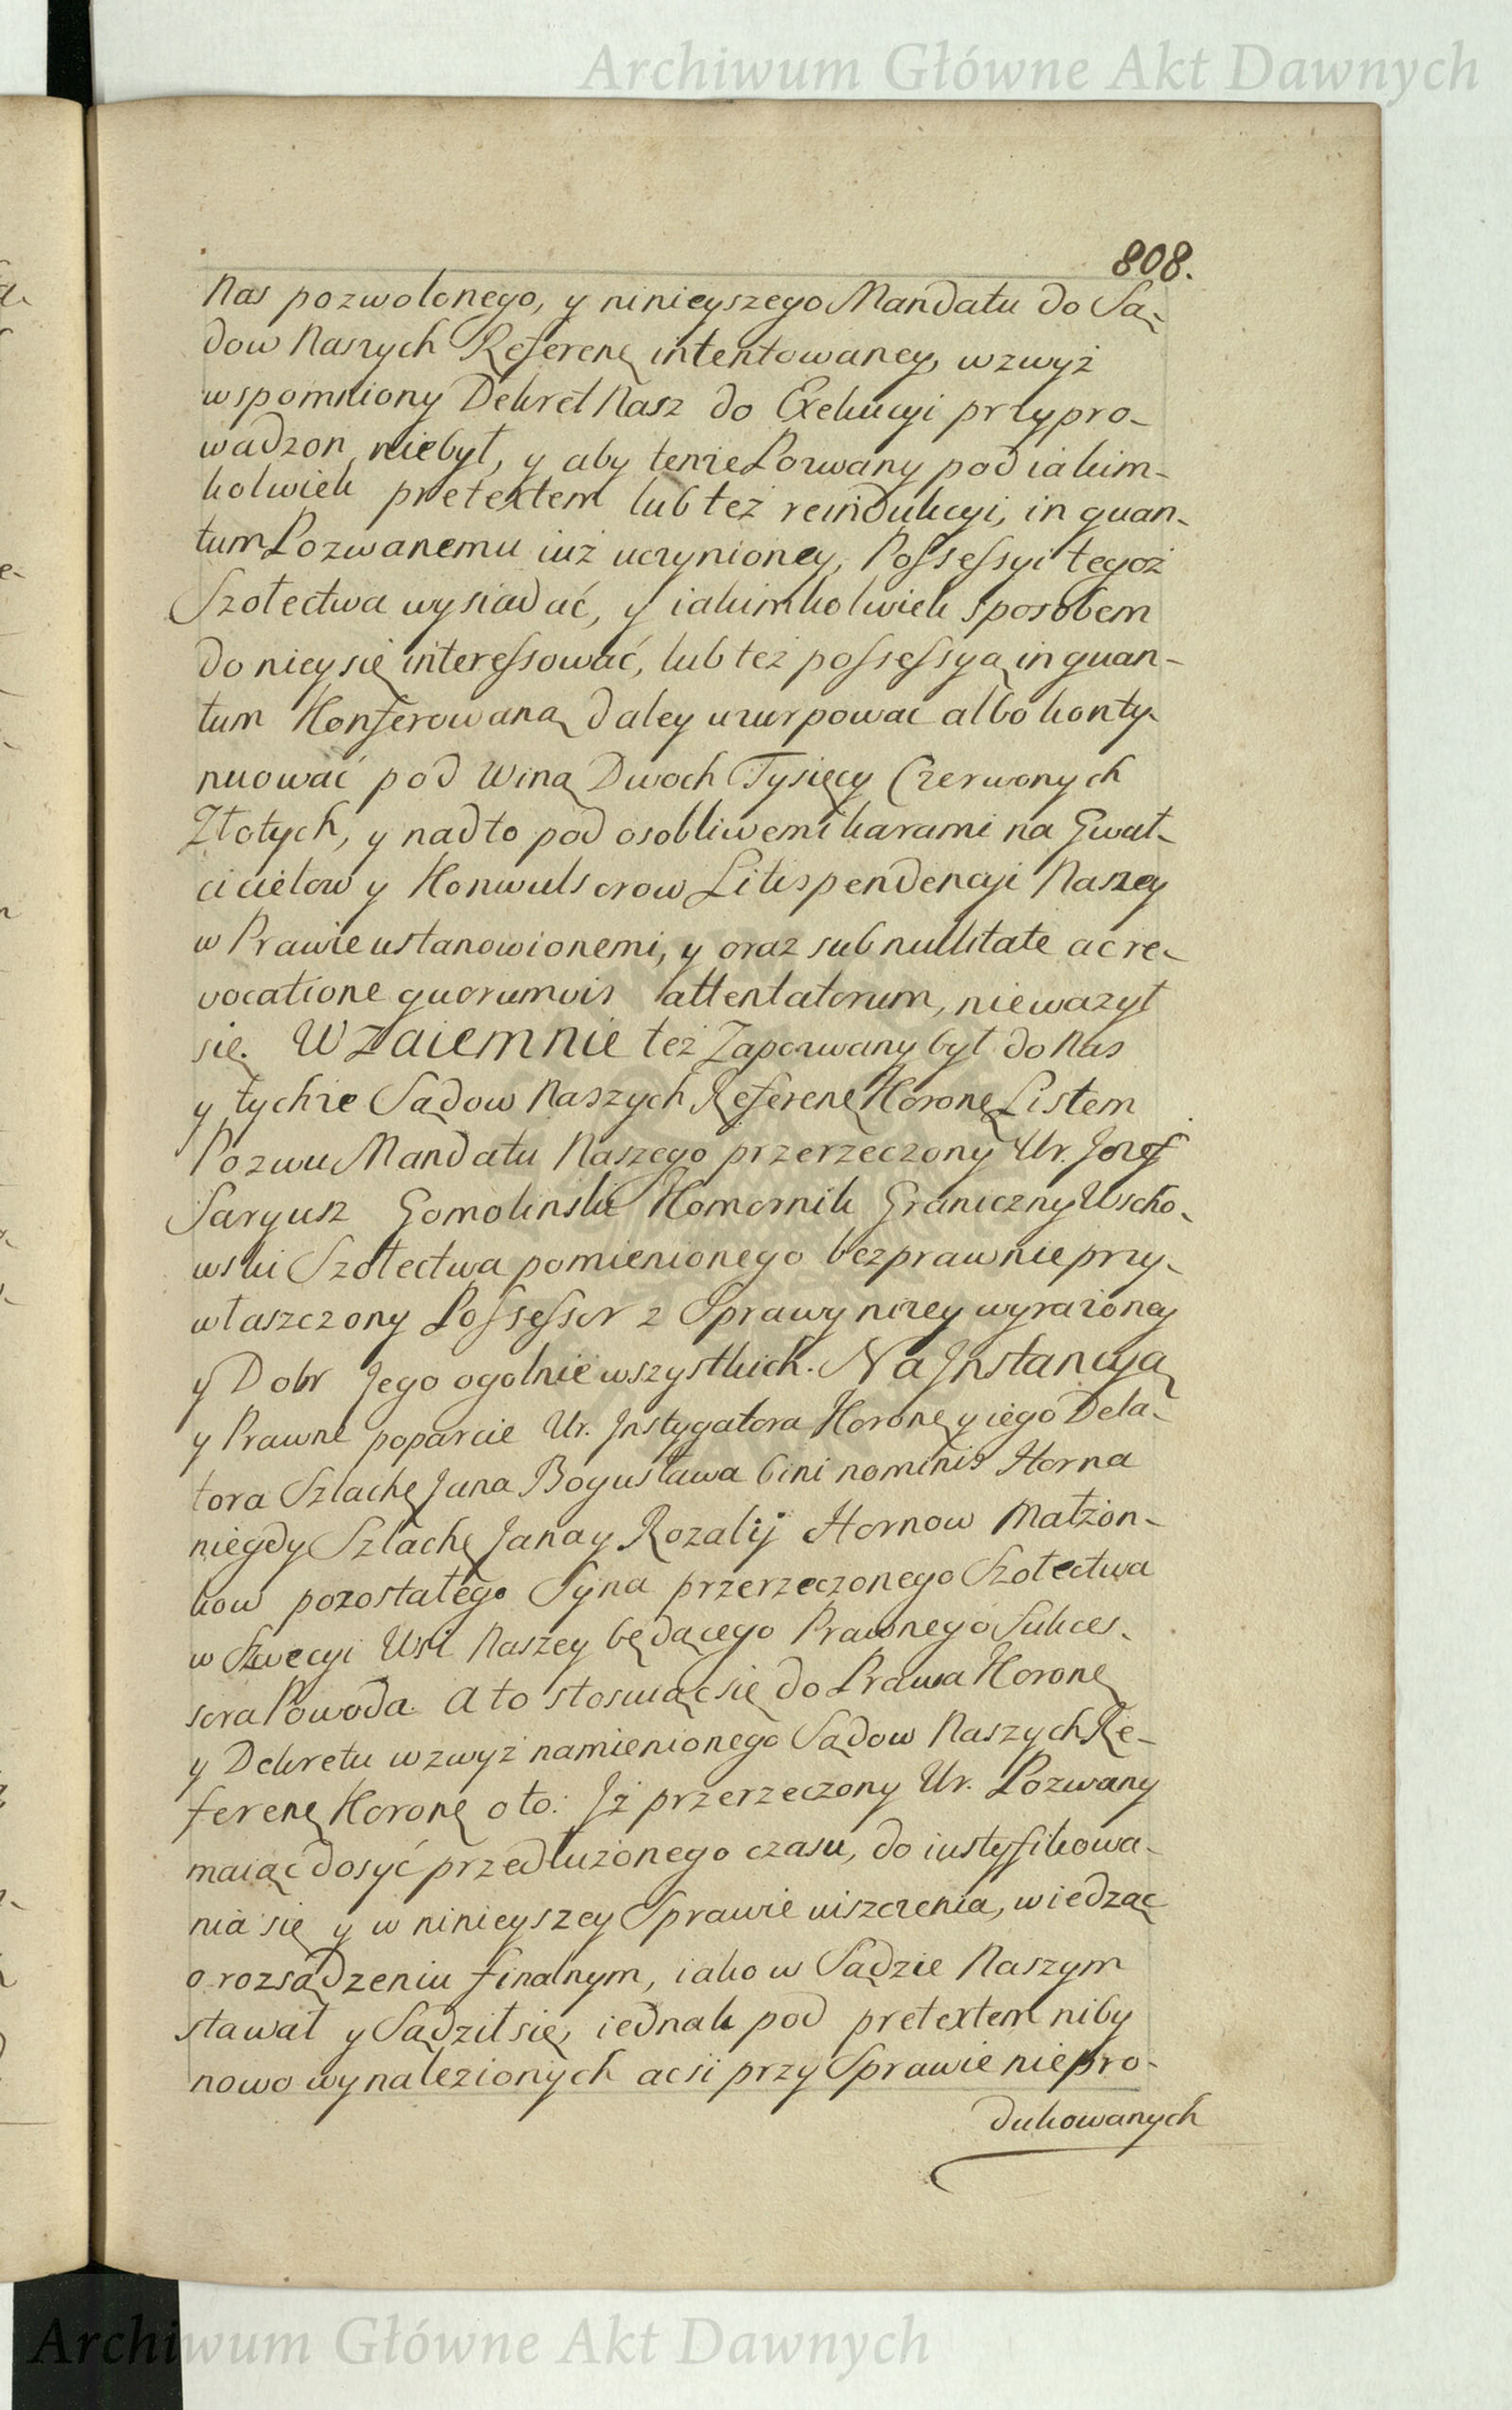 Archiwum Główne Akt Dawnych
808.
Nas pozwolonego, y ninieyszego Mandatu do Są-
dow Naszych Referenę intentowaney, wzwyż
wspomniony Dekret Nasz do Exekucyi przypro-
wadzon niebył, y aby tenże Pozwany pod iakim-
kolwiek pretextem lub też reindukcyi, in quan-
tum Pozwanemu iuż uczynioney, Possessyi tegoż
Szołectwa wysiadać, y iakimkolwiek sposobem
do niey się interessować, lub też possessyą in quan-
tum Konferowaną daley uzurpować albo konty-
nuować pod Winą Dwoch Tysięcy Czerwonych
Złotych, y nadto pod osobliwemi karami na Gwał-
cicielow y Konwulsorow Litispendencyi Naszey
w Prawie ustanowionemi, y oraz sub nullitate ac re-
vocatione quorumvis attentatorum, nieważył
się. Wzaiemnie też Zapozwany był do Nas
y tychże Sądow Naszych Referenę Koronę Listem
Pozwu Mandatu Naszego przerzeczony Ur. Jozef
Saryusz Gomolinski Komornik Graniczny Wscho-
wski Szołectwa pomienionego bezprawnie przy-
własczony Possessor z Sprawy niżey wyrażoney
y Dobr Jego ogolnie wszystkich. Na Jnstancyą
y Prawne poparcie Ur. Jnstygatora Koronę y iego Dela-
tora Szlachę Jana Bogusława bini nominis Horna
niegdy Szlachę Jana y Rozalij Hornow Małżon-
kow pozostałego Syna przerzeczonego Szołectwa
w Szwecyi Wsi Naszey będącego Prawnego Sukces-
sora Powoda. A to stosuiąc się do Prawa Koronę
y Dekretu wzwyż namienionego Sądow Naszych Re-
ferenę Koronę o to: Jż przerzeczony Ur. Pozwany
maiąc dosyć przedłużonego czasu, do iustyfikowa-
nia się y w ninieyszey Sprawie uiszczenia, wiedząc
o rozsądzeniu finalnym, iako w Sądzie Naszym
stawał y Sądził się, iednak pod pretextem niby
nowo wynalezionych acsi przy Sprawie niepro-
dukowanych
Archiwum Główne Akt Dawnych